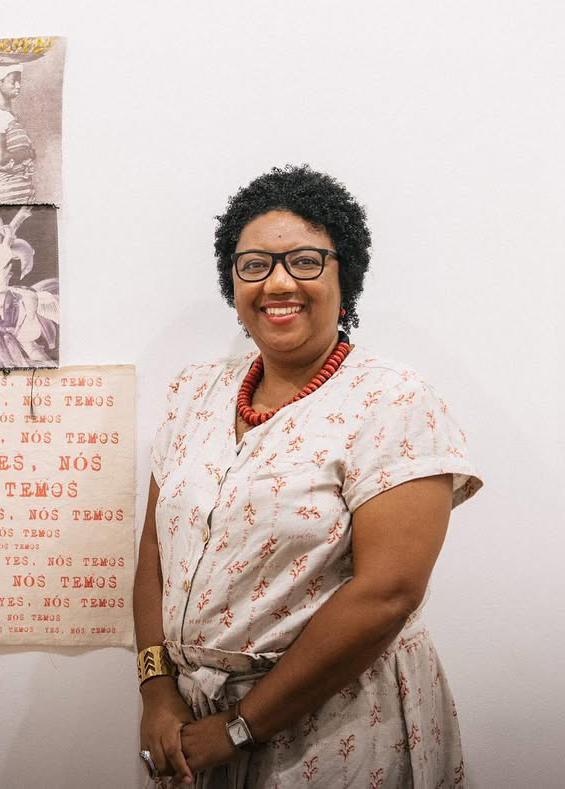 S, NÓS TEMOS
, NÓS TEMOS
NÓS TEMOS
, NÓS TEMOS
ES, NÓS
TEMOS
S, NÓS TEMOS
NÓS TEMOS
NÓS TEMOS
YES, NÓS TEMOS
NÓS TEMOS
YES, NÓS TEMOS
NÓS TEMOS
TEMOS YES, NÓS TEMOS